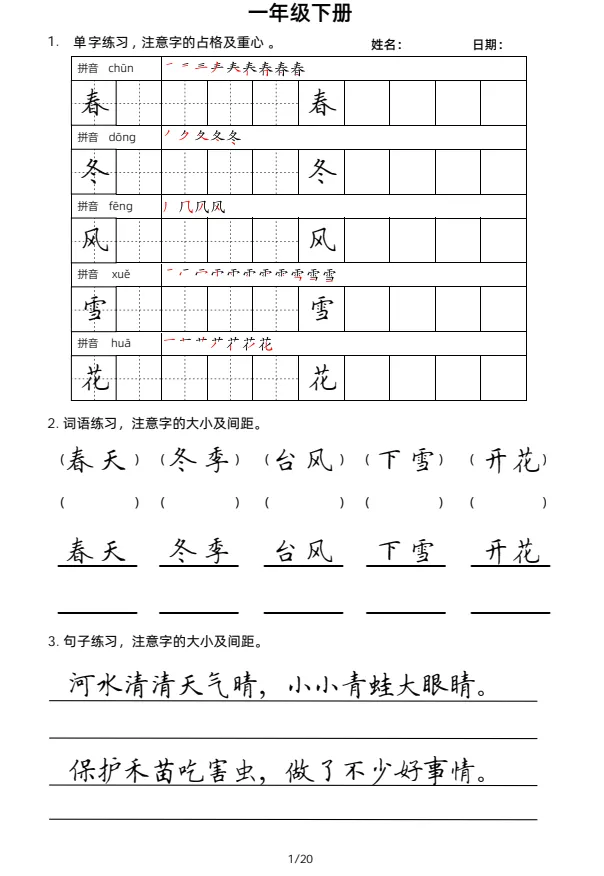 一年级下册
1. 单字练习，注意字的占格及重心。 姓名： 日期：
拼音 chūn
春 春
拼音 dōng
冬 冬
拼音 fēng
风 风
拼音 xuě
雪 雪
拼音 huā
花 花
2. 词语练习，注意字的大小及间距。
（春天）（冬季）（台风）（下雪）（开花）
（ ）（ ）（ ）（ ）（ ）
春天 冬季 台风 下雪 开花
3. 句子练习，注意字的大小及间距。
河水清清天气晴，小小青蛙大眼睛。
保护禾苗吃害虫，做了不少好事情。
1/20